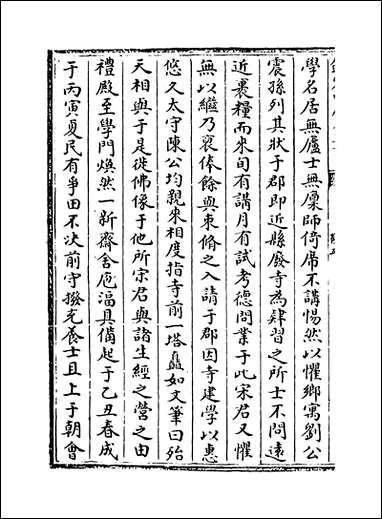 學名居無廬士無廩師倚席不講惕然以懼鄉寓劉公
震孫列其狀于郡即近縣廢寺為肄習之所士不問遠
近裹糧而來旬有講月有試考德問業于此宋君又懼
無以繼乃裒俸餘與束脩之入請于郡因寺建學以惠
悠久太守陳公均親來相度指寺前一塔矗如文筆曰殆
天相與于是徙佛像于他所宗君與諸生經之營之由
禮殿至學門煥然一新齋舍庖湢具備起于乙丑春成
于丙寅夏民有爭田不決前守撥充養士且上于朝會